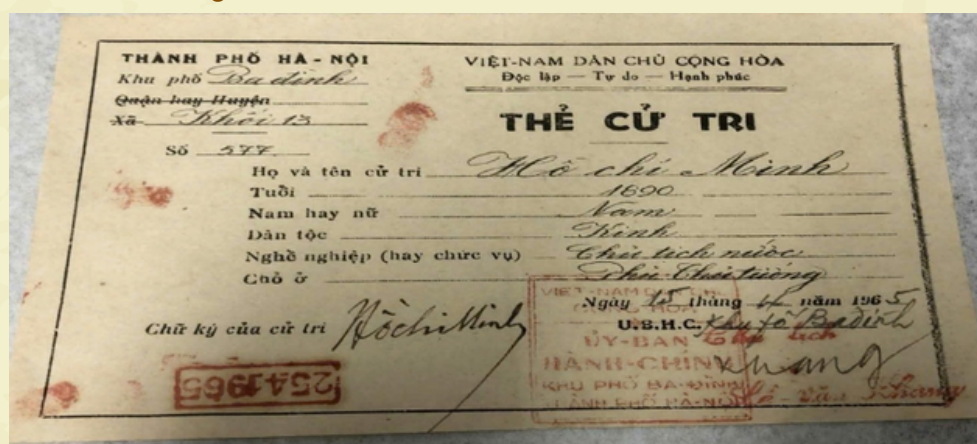 THÀNH PHỐ HÀ-NỘI
Khu phố Ba đình
Quận hay Huyện
Xã Khối 13
Số 577
VIỆT-NAM DÂN CHỦ CỘNG HÒA
Độc lập — Tự do — Hạnh phúc
THẺ CỬ TRI
Họ và tên cử tri Hồ chí Minh
Tuổi 1890
Nam hay nữ Nam
Dân tộc Kinh
Nghề nghiệp (hay chức vụ) Chủ tịch nước
Chỗ ở Phủ Chủ tướng
Ngày 15 tháng 4 năm 1965
U.B.H.C. Khu fố Ba đình
Chữ ký của cử tri HồchíMinh
VIỆT-NAM DÂN CHỦ
CỘNG HÒA
ỦY-BAN
HÀNH-CHÍNH
KHU PHỐ BA-ĐÌNH
THÀNH PHỐ HÀ-NỘI
2541965